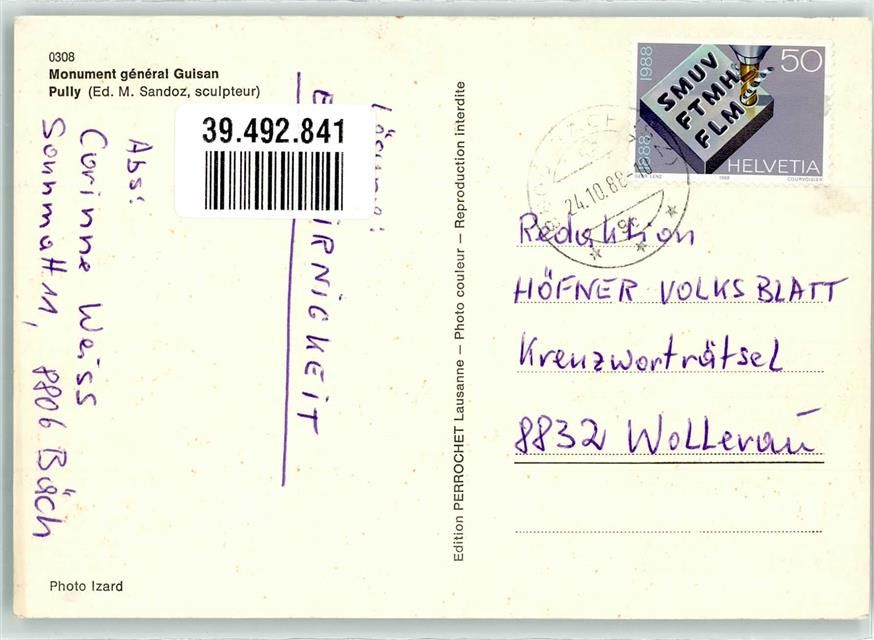 0308
Monument général Guisan
Pully (Ed. M. Sandoz, sculpteur)
39.492.841
Abs:
Corinne Weiss
Sonnmatt 1, 8806 Bäch
Photo Izard
Edition PERROCHET Lausanne – Photo couleur – Reproduction interdite
1988
50
SMUV
FTMH
FLM
1888
HELVETIA
1988
COURVOISIER
24.10.88
Redaktion
HÖFNER VOLKSBLATT
Kreuzworträtsel
8832 Wollerau